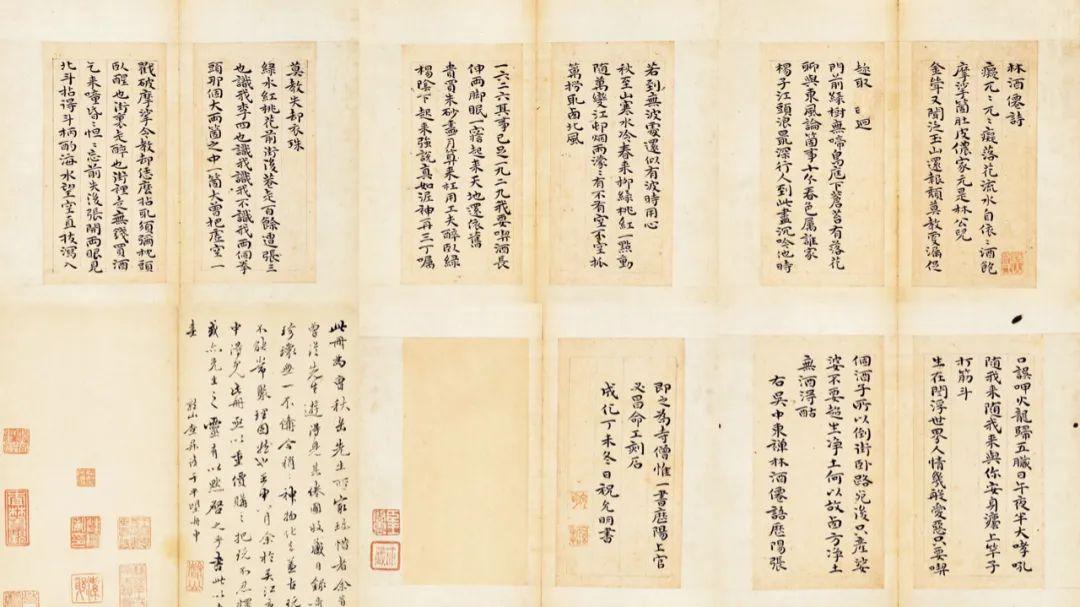 林酒僊詩
癡兀〻兀〻癡落花流水自依〻酒飽
摩挲箇肚皮儂家元是林公兒
金斝又聞泛玉山還報頹莫教愛漏促
趁取〻迴
門前綠樹無啼鳥庭下蒼苔有落花
聊與東風論箇事十分春色屬誰家
楊子江頭浪最深行人到此盡沉吟他時
若到無波處還似有波時用心
秋至山寒水冷春來柳綠桃紅一點動
隨萬變江邨烟雨濛〻有不有空不空笊
籬撈取西北風
一六二六其事已足一九二九我要喫酒長
伸兩脚眠一寤起來天地還依舊
貴買朱砂畫月算來枉用工夫醉臥綠
楊陰下起來強說真如泥神再三丁囑
莫教失却衣珠
綠水紅桃花前街後巷走百餘遭張三
也識我李四也識我識我不識我兩個拳
頭那個大兩箇之中一箇大曾把虛空一
戳破摩挲令教却恁麼拈取須彌枕頭
臥醒也街裏走醉也街裡走無錢買酒
乞來噇昏〻怛〻忘前失後張開兩眼見
北斗拈得斗柄酌海水望空直拔瀉入
口誤呷火龍歸五臟日午夜半大哮吼
隨我來隨我來與你安身上竿子
打筋斗
生在閻浮世界人情幾般愛惡只要喫
個酒子所以倒街臥路死後只產娑
婆不要超生淨土何以故西方淨土
無酒得酤
右吳中東禪林酒僊語歷陽張
即之為寺僧惟一書歷陽上官
必昌命工刻石
成化丁未冬日祝允明書
此冊為曹秋岳先生所家珍惜者余昔
曾從先生遊得見其俵圖收藏目錄
珍瓌無一不備合稱神物化去並古玩
不能常聚理固然也申八月余於吳江
中得見此冊亟以重價購之把玩不忍釋
或亦先生之靈有以默啓之乎書此以